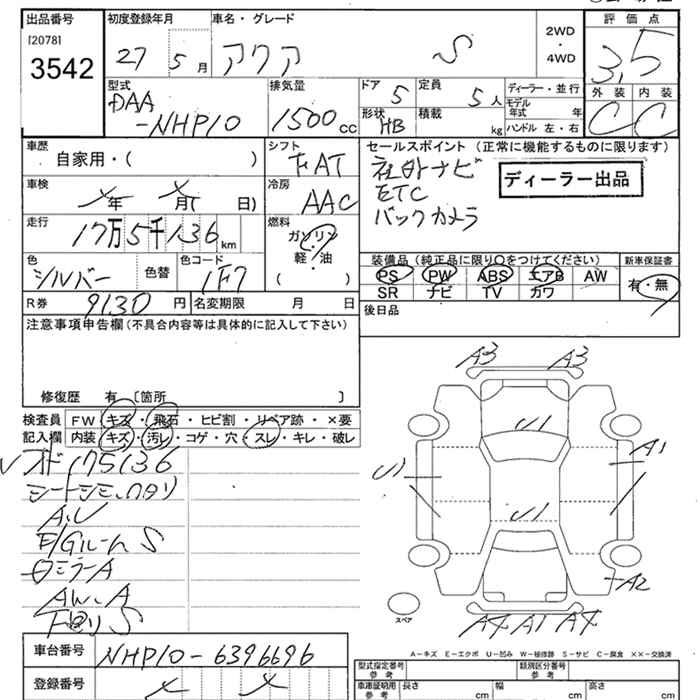 出品番号
[2078]
3542
初度登録年月
27 5月
車名・グレード
アクア S
2WD
・
4WD
評価点
3.5
外装 内装
C C
型式
DAA
-NHP10
排気量
1500cc
ドア 5
定員 5人
形状 HB
積載 kg
ディーラー・並行
モデル年式 年
ハンドル 左・右
車歴
自家用・( )
シフト
FAT
セールスポイント (正常に機能するものに限ります)
社外ナビ
ETC
バックカメラ
ディーラー出品
車検
年 月( 日)
冷房
AAC
走行
17万5千136km
燃料
ガソリン
・
軽・油
( )
色
シルバー
色替
色コード
1F7
装備品 (純正品に限り○をつけてください)
PS PW ABS エアB AW
SR ナビ TV カワ
新車保証書
有・無
R券 9130円
名変期限 月 日
後日品
注意事項申告欄 (不具合内容等は具体的に記入して下さい)
修復歴 有 〔箇所 〕
検査員
記入欄
FW キズ・飛石・ヒビ割・リペア跡・×要
内装 キズ・汚レ・コゲ・穴・スレ・キレ・破レ
オド175136
A.U
E/Gルーム S
ロミラーA
AW.A
下回り S
A3 A3
U1
A1
U1
U1
A2
A4 A1 A4
スペア
A－キズ E－エクボ U－凹み W－補修跡 S－サビ C－腐食 ××－交換済
車台番号
NHP10-6396696
登録番号
型式指定番号
参考
類別区分番号
参考
車庫証明用
参考
長さ cm 幅 cm 高さ cm